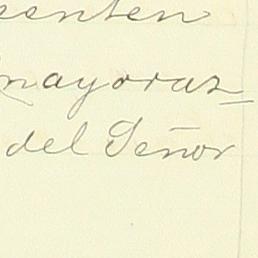 eenten
mayoraz_
del Señor